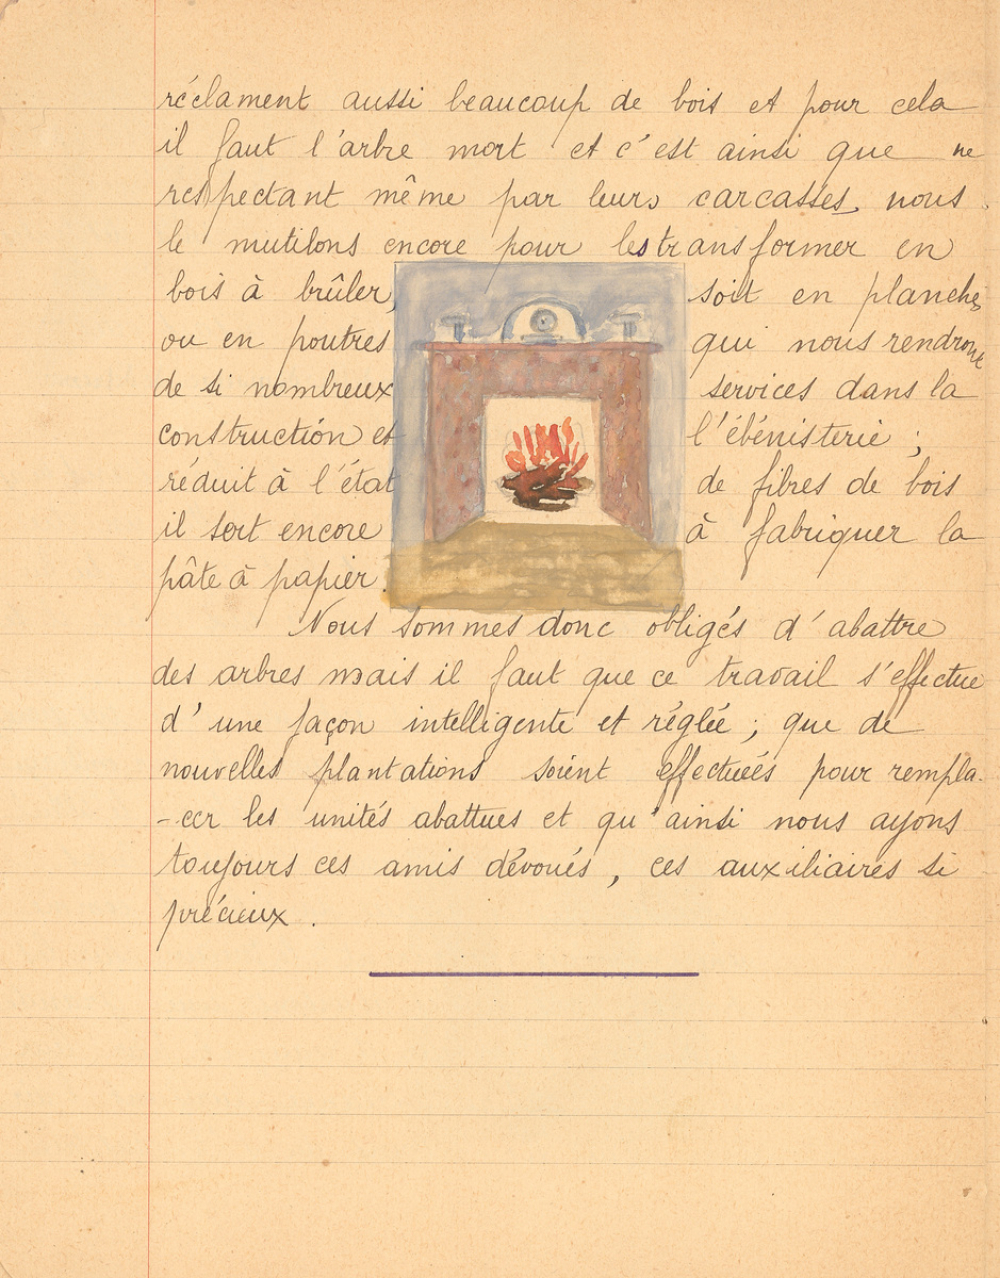 réclament aussi beaucoup de bois et pour cela
il faut l'arbre mort et c'est ainsi que ne
respectant même par leurs carcasses nous
le mutilons encore pour les transformer en
bois à brûler, soit en planches
ou en poutres qui nous rendront
de si nombreux services dans la
construction et l'ébénisterie ;
réduit à l'état de fibres de bois
il sert encore à fabriquer la
pâte à papier.
Nous sommes donc obligés d'abattre
des arbres mais il faut que ce travail s'effectue
d'une façon intelligente et réglée ; que de
nouvelles plantations soient effectuées pour rempla-
-cer les unités abattues et qu'ainsi nous ayons
toujours ces amis dévoués, ces auxiliaires si
précieux.